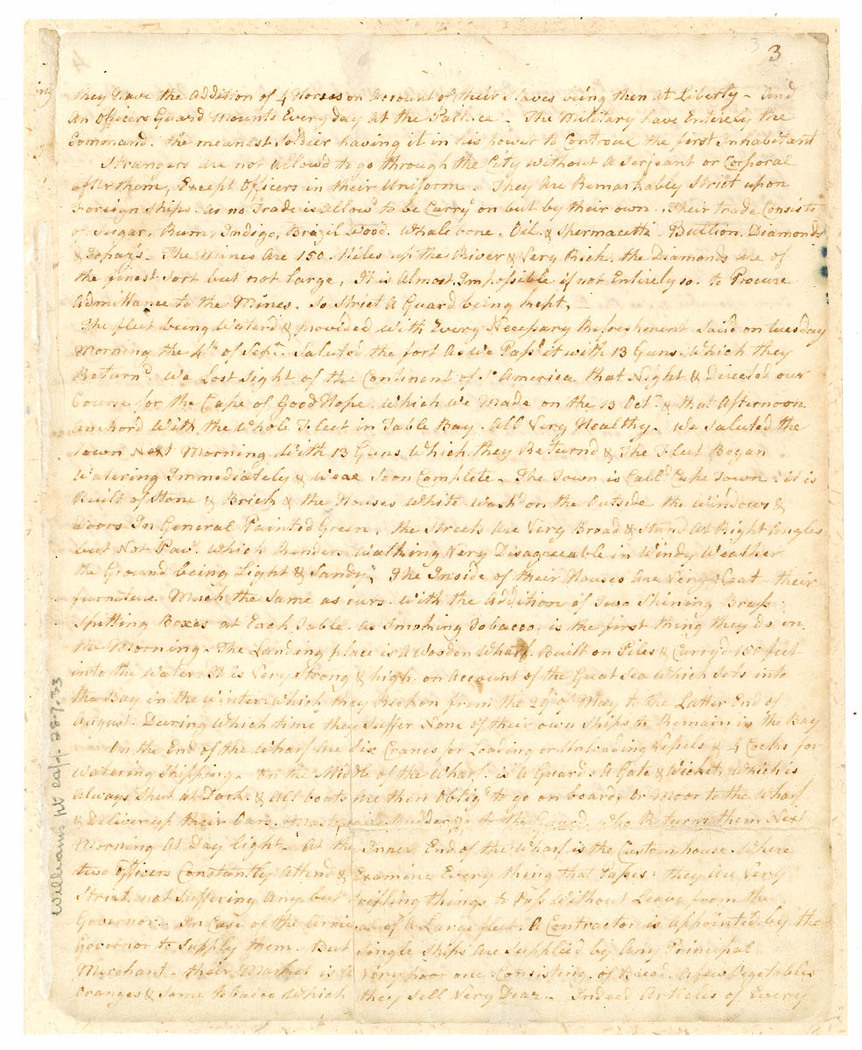 3
they have the Addition of 4 Horses on Account of their Slaves being then at Liberty - And
An Officers Guard Mounts Every day at the Pallice - The Military have Entirely the
Command. the meanest Soldier having it in his power to Controul the first Inhabitant
Strangers are not allowd to go through the City without A Serjeant or Corporal
after them, Except Officers in their Uniform. They Are Remarkably Strict upon
Foreign Ships. as no Trade is allowd to be Carry'd on but by their own. Their trade Consists
of Sugar, Rum, Indigo, Brazil Wood. Whale bone, Oil & Spermacetti. Bullion. Diamonds
& Topaz's. The Mines Are 150 Miles up the River & Very Rich. the Diamonds are of
the finest Sort but not large, It is Almost Impossible if not Entirely so. to Procure
Admittance to the Mines. So Strict A Guard being kept. -
The fleet being Waterd & provided With Every Necessary Refreshment Saild on tuesday
Morning the 4th of Sept. Saluted the fort As we Pass'd it with 13 Guns. Which they
Returnd. We Lost Sight of the Continent of So America that Night & Directed our
Course for the Cape of Good Hope. which We Made on the 13 Octr & that Afternoon
Anchord With the Whole Fleet in Table Bay. All Very Healthy. We Saluted the
town Next Morning With 13 Guns Which they Returnd & The Fleet Began
Watering Immediately & Was Soon Complete - The Town is Calld Cape Town it is
Built of Stone & Brick & the Houses White Wash'd on the Outside the Windows &
Doors In General Painted Green, the Streets are Very Broad & Stand At Right Angles
but Not Pav'd. Which Renders Walking Very Disagreeable in Windy Weather
the Ground being Light & Sandy, The Inside of their Houses Are Very Neat their
furniture Much the Same as ours With the Addition of Two Shining Brass
Spitting Boxes at Each Table. as Smoking Tobacco. is the first thing they do in
the Morning. The Landing place is A Wooden Wharf. Built on Piles & Carry'd 150 feet
into the Water. It is Very Strong & high. on Account of the Great Sea Which Sets into
the Bay in the Winter which they Reckon from the of May to the Latter End of
August. During Which time they Suffer None of their own Ships to Remain in the Bay
On the End of the Wharf Are Six Cranes for Loading or Unloading Vessels & 4 Cocks for
Watering Shipping. On the Middle of the Wharf is A Guard. A Gate & Wicket, which is
always Shut at Dark. & All boats Are then Oblig'd to go on board, Or Moor to the Wharf
& Deliver up their Oars. Masts, Rudder &c to the Guard. who Returns them Next
Morning At Day light. At the Inner End of the Wharf is the Custom house Where
two Officers Constantly Attend & Examine Every thing that Passes. they Are Very
Strict, not Suffering Any but trifling things to Pass Without Leave from the
Governor. In Case of the Arrival of A Large fleet. A Contractor is Appointed by the
Governor to Supply them. But Single Ships Are Supplied by Any Principal
Merchant. their Market is A Very poor one Consisting of Bread A few Vegetables
Oranges & Some tobacco Which they Sell Very Dear - Indeed Articles of Every
Williams pt 28.7.33